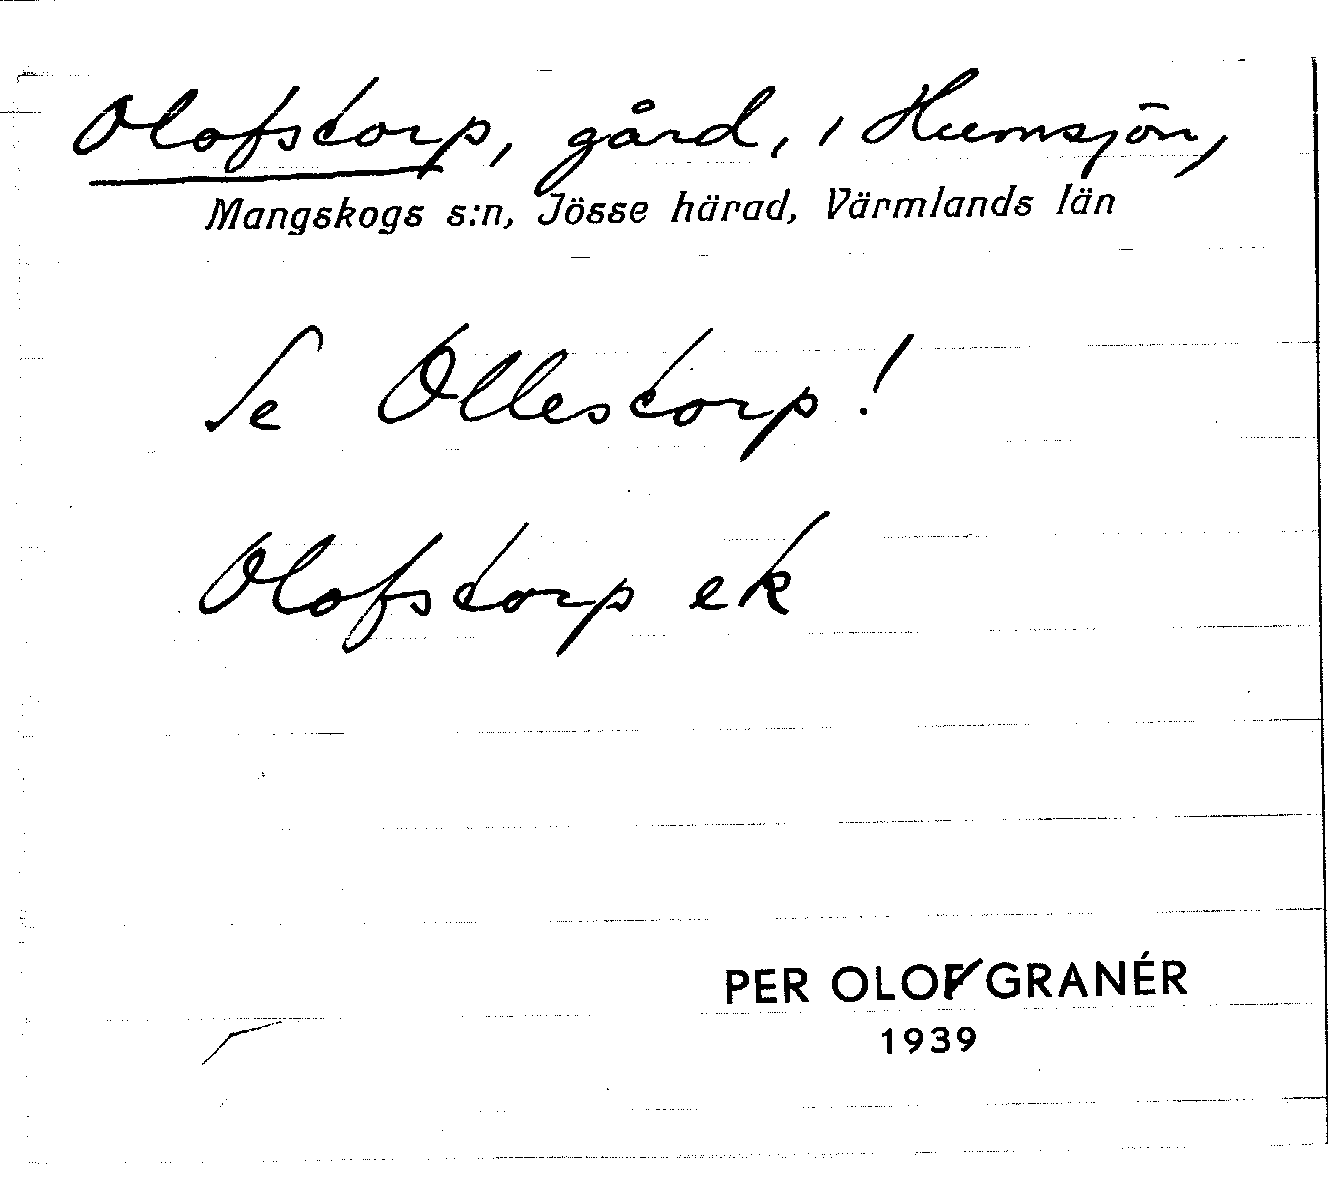 Olofstorp, gård, i Humsjön,
Mangskogs s:n, Jösse härad, Värmlands län
Se Ollestorp!
Olofstorp ek
PER OLOF GRANÉR
1939